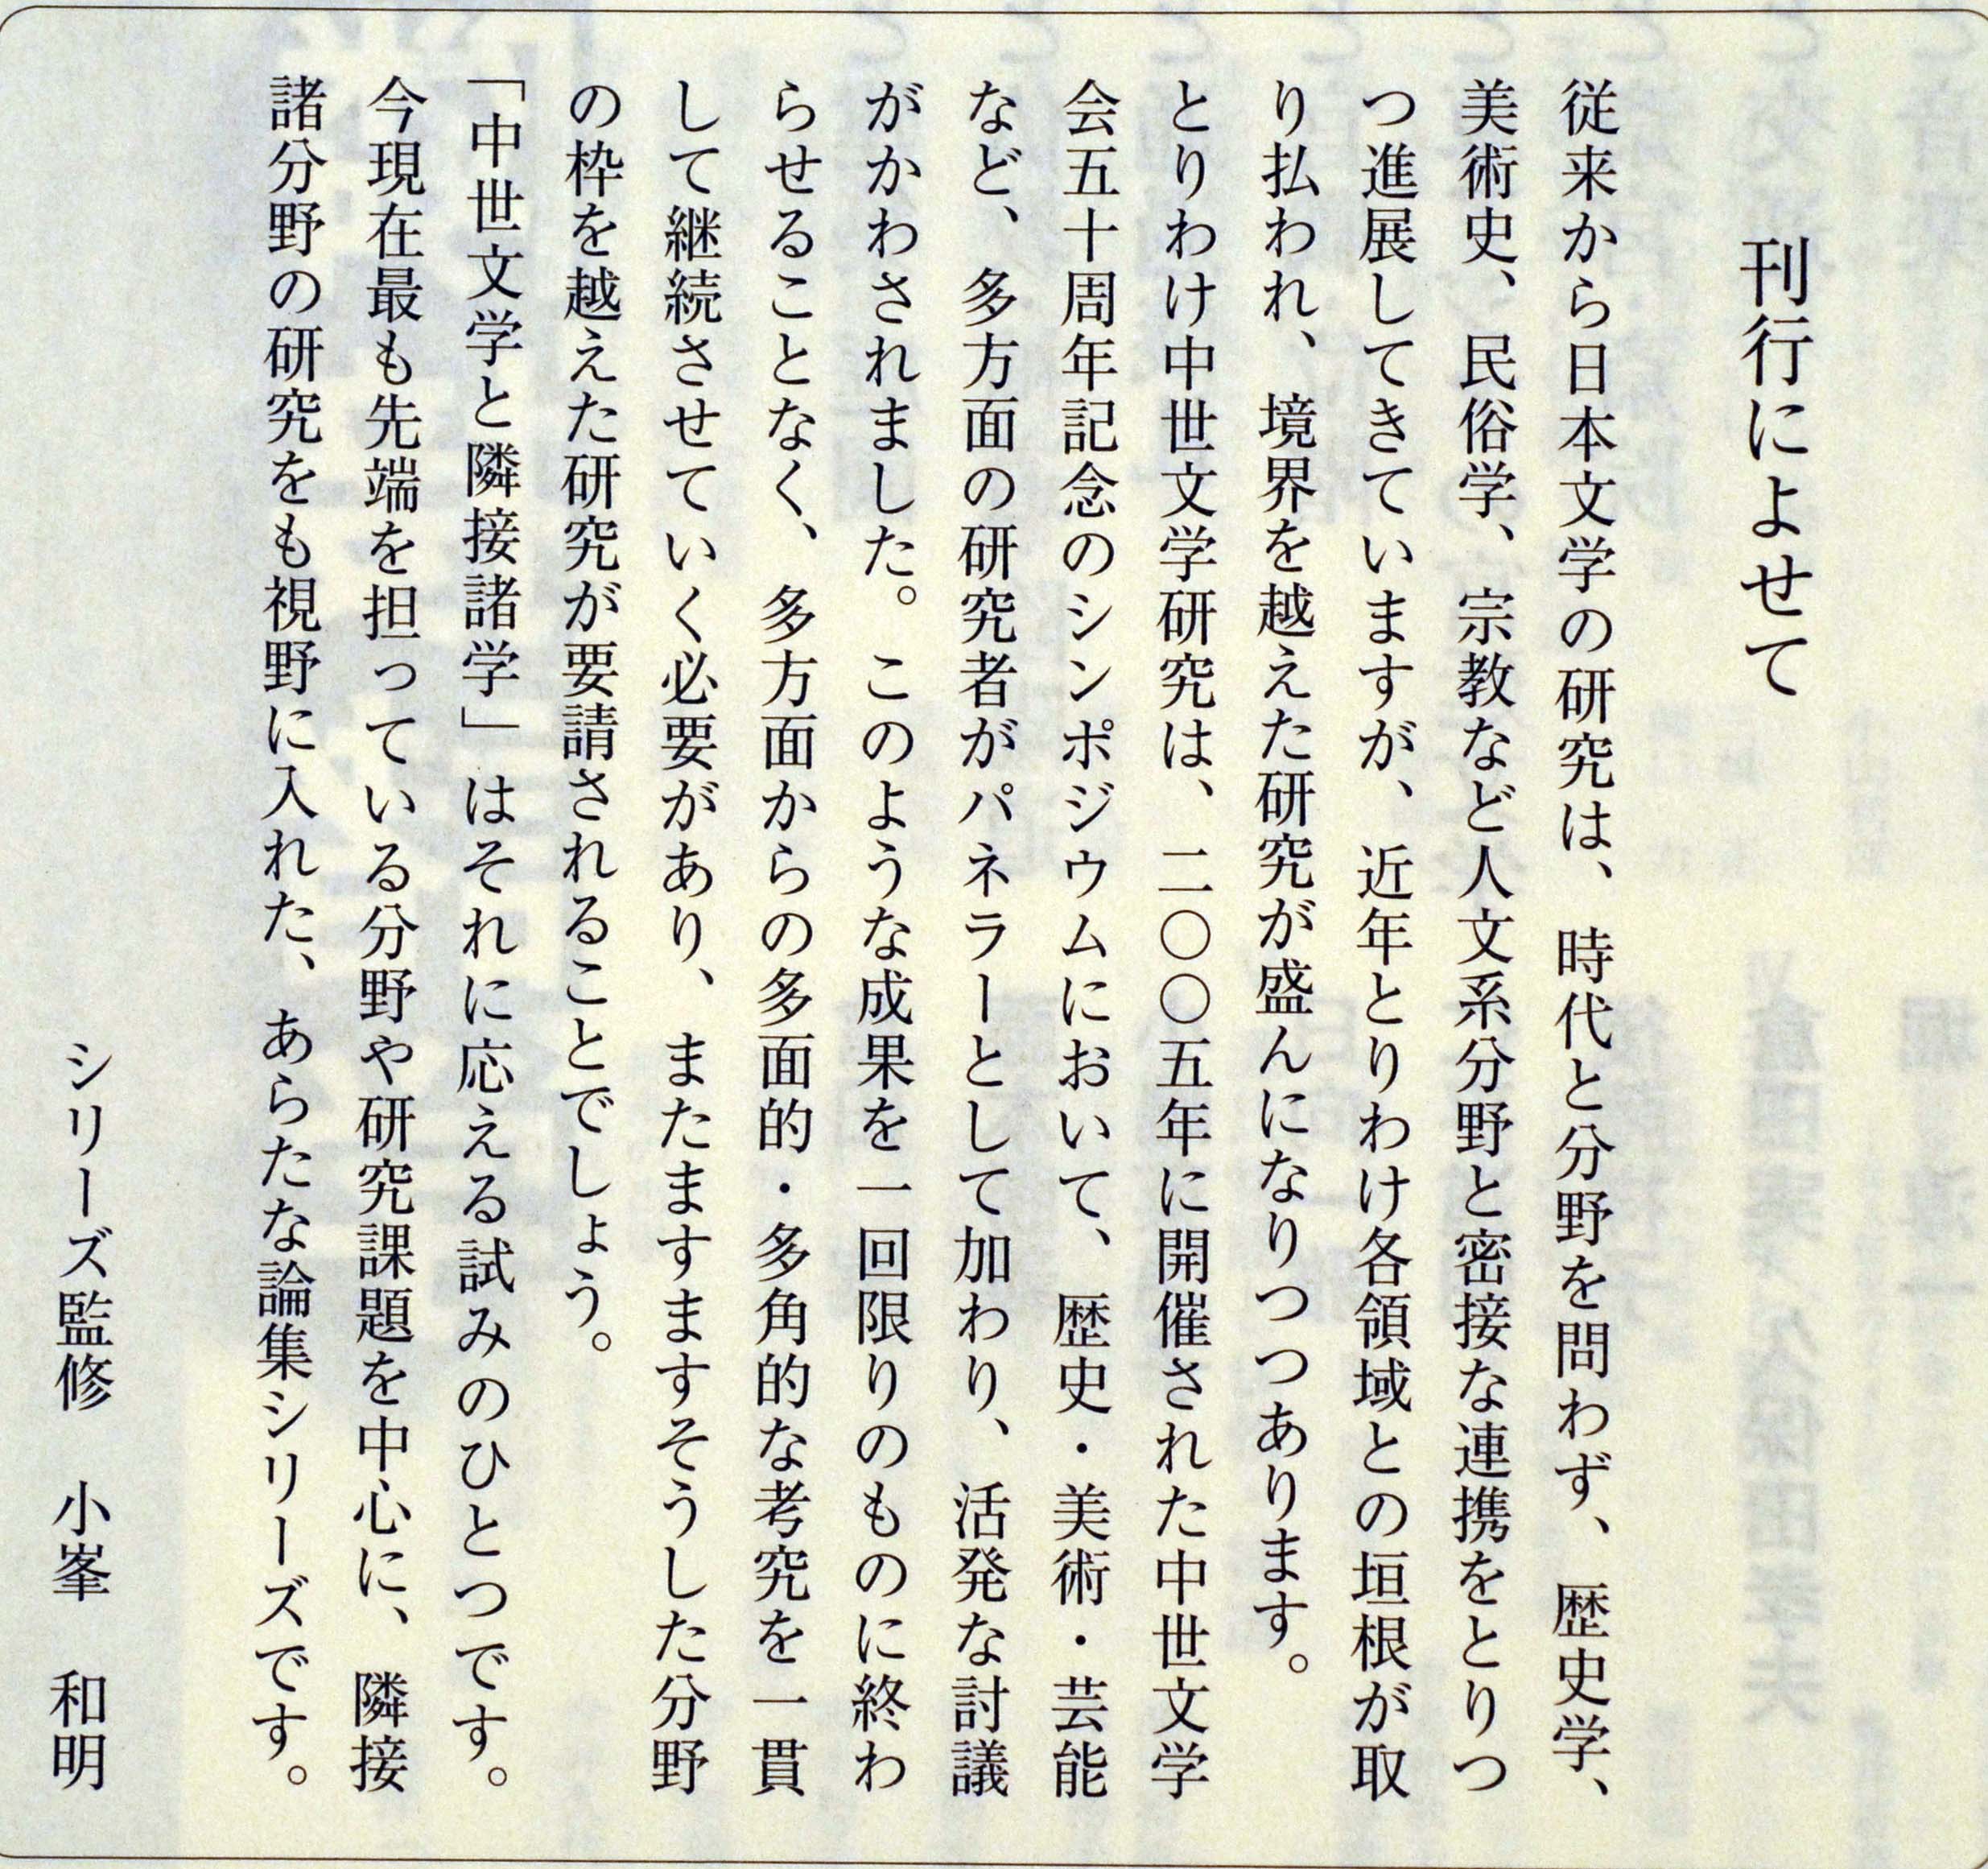 刊行によせて
従来から日本文学の研究は、時代と分野を問わず、歴史学、
美術史、民俗学、宗教など人文系分野と密接な連携をとりつ
つ進展してきていますが、近年とりわけ各領域との垣根が取
り払われ、境界を越えた研究が盛んになりつつあります。
とりわけ中世文学研究は、二〇〇五年に開催された中世文学
会五十周年記念のシンポジウムにおいて、歴史・美術・芸能
など、多方面の研究者がパネラーとして加わり、活発な討議
がかわされました。このような成果を一回限りのものに終わ
らせることなく、多方面からの多面的・多角的な考究を一貫
して継続させていく必要があり、またますますそうした分野
の枠を越えた研究が要請されることでしょう。
「中世文学と隣接諸学」はそれに応える試みのひとつです。
今現在最も先端を担っている分野や研究課題を中心に、隣接
諸分野の研究をも視野に入れた、あらたな論集シリーズです。
シリーズ監修　小峯　和明